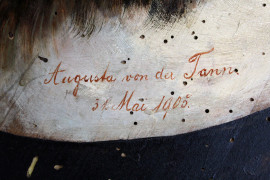 Augusta von der Tann.
31. Mai 1905.